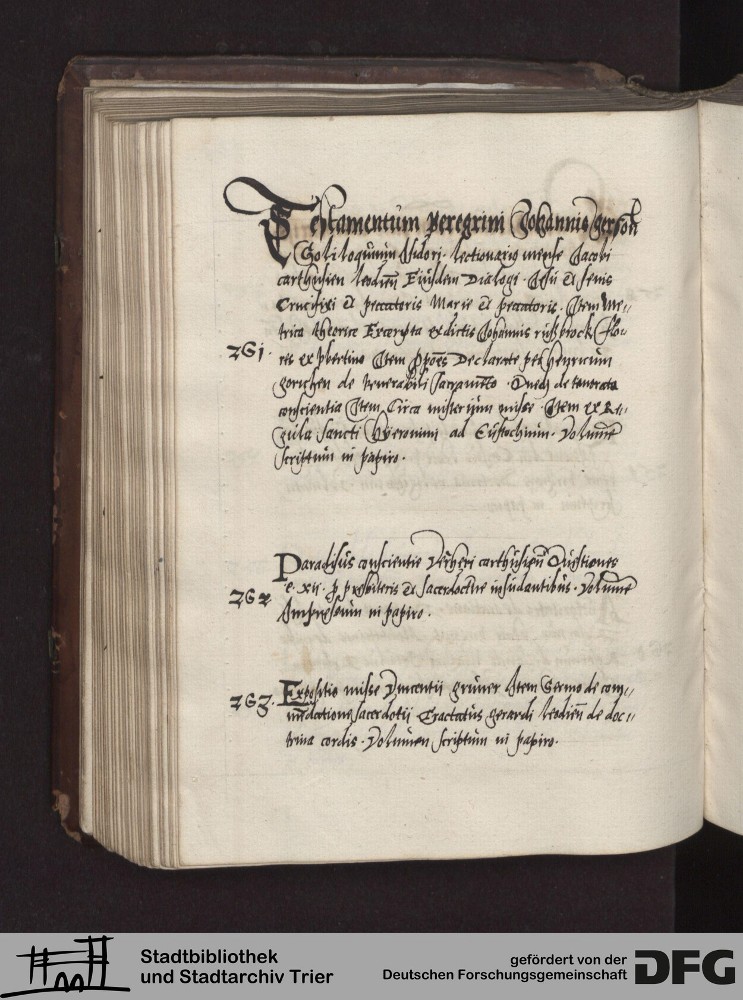 Testamentum peregrini Johannis Gerson
Soliloquium Isidori. lectionario mense Jacobi
carthusien leodien Eiusdem Dialogi. Jesu et senis
Crucifixi et peccatoris Marie et peccatoris. Item Me-,
trica theorice Excerpta ex dictis Johannis rusbrock Flo-,
res ex Ubertino Item Declarate per henricum
gorichen de venerabili sacramento. de
conscientia Item Circa misterium misse. Item ex Re-,
gula sancti Hyeronimi ad Eustochium. Volumen
scriptum in papiro.
ZG1.
Paradisus conscientie carthusien Questiones
xii. p presbiteris et insudantibus. Volumen
Impressum in papiro.
ZG2
Expositio misse Vincentii gruner Item Sermo de com-,
mendatione sacerdotii Tractatus gerardi leodien de doc-,
trina cordis. Volumen scriptum in papiro.
ZG3.
Stadtbibliothek
und Stadtarchiv Trier
gefördert von der
Deutschen Forschungsgemeinschaft
DFG